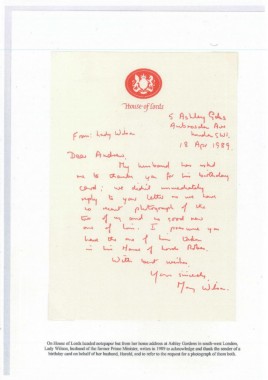 House of Lords
5 Ashley Gdns
Ambrosden Ave
London SW1.
18 Apr 1989.
From: Lady Wilson
Dear Andrew,
My husband has asked
me to thank you for his birthday
card; we didn't immediately
reply to your letter as we have
no recent photograph of the
two of us and no good new
one of him. I presume you
have the one of him taken
in his House of Lords Robes.
With best wishes,
Yours sincerely,
Mary Wilson.
On House of Lords headed notepaper but from her home address at Ashley Gardens in south-west London,
Lady Wilson, husband of the former Prime Minister, writes in 1989 to acknowledge and thank the sender of a
birthday card on behalf of her husband, Harold, and to refer to the request for a photograph of them both.